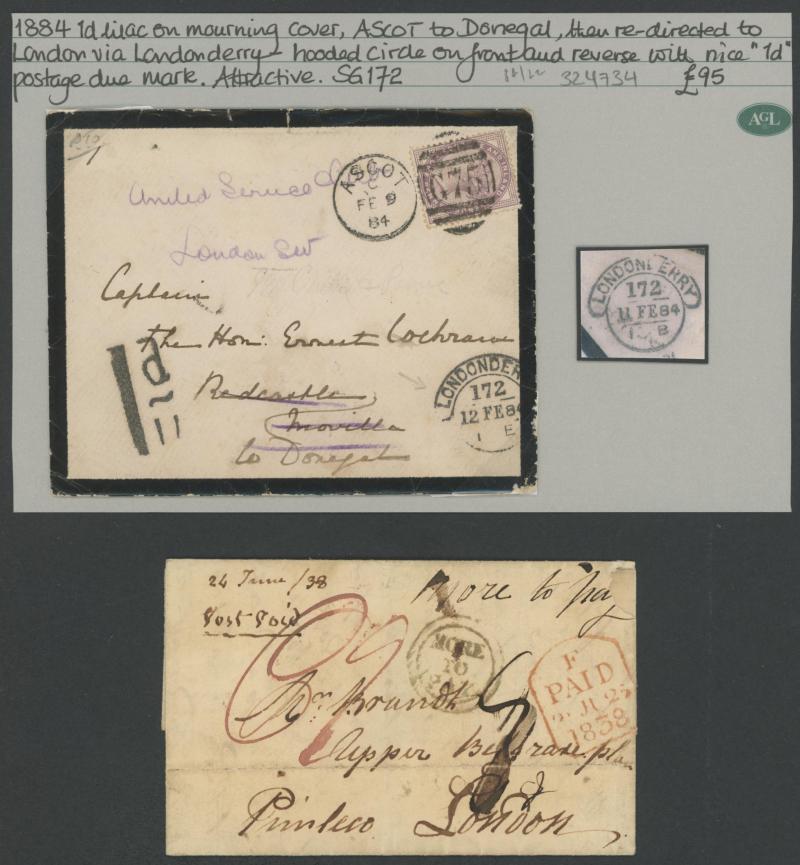 1884 1d lilac on mourning cover, ASCOT to Donegal, then re-directed to
London via Londonderry - hooded circle on front and reverse with nice "1d"
postage due mark. Attractive. SG172 324734 £95
AGL
ASCOT
C
FE 9
84
C75
United Service Club
London SW
Captain
The Hon: Ernest Cochrane
Redcastle
Moville
Co Donegal
1d
LONDONDER
172
12 FE 84
1 E
LONDONDERRY
172
11 FE 84
1 B
24 June /38
Post Paid
More to pay
MORE
TO
PAY
F
PAID
JU 25
1838
Mr. Brandt
Upper Belgrave pla
Pimlico London